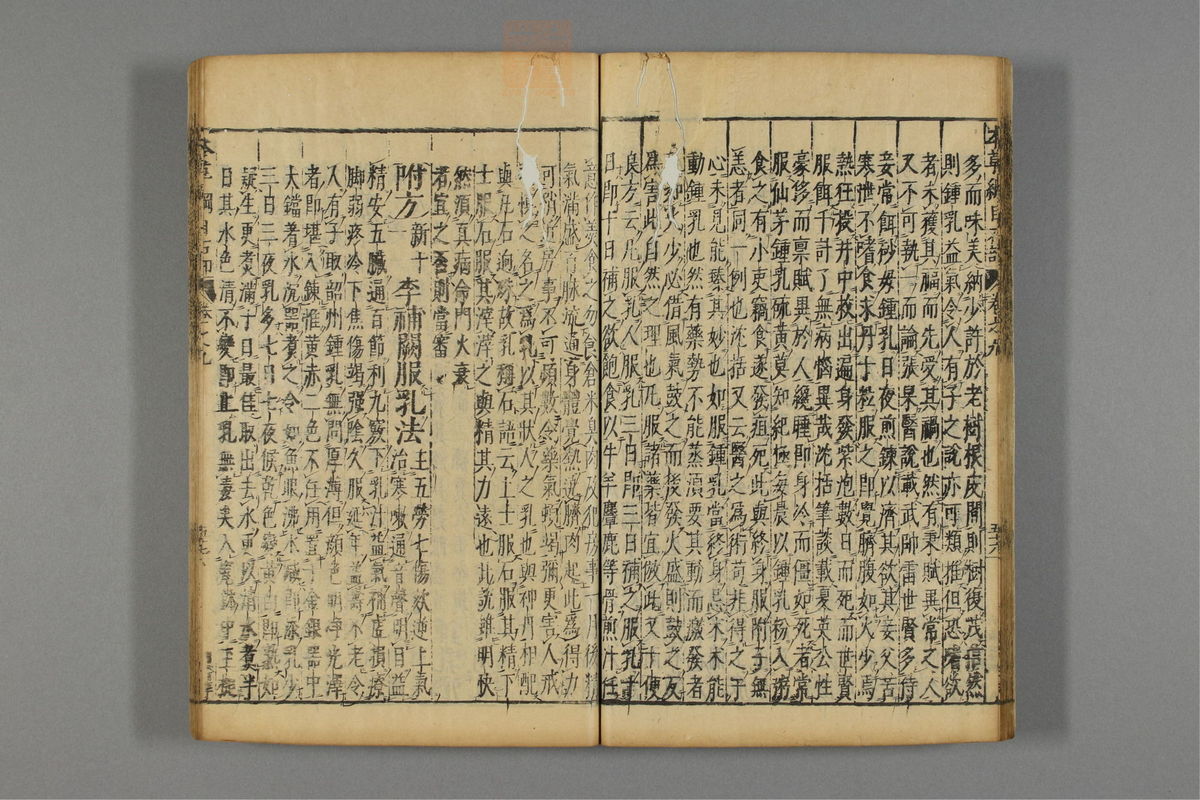 多而味美納少許於老樹根皮間則樹復茂信然
則鍾乳益氣令人有子之說亦可類推但恐嗜欲
者未獲其福而先受其禍也然有秉賦異常之人
又不可執一而論張杲醫說載武帥雷世賢多侍
妾常餌砂母鍾乳日夜煎鍊以濟其欲其妾父苦
寒泄不嗜食求丹十粒服之即覺臍腹如火少焉
熱狂投井中救出遍身發紫泡數日而死而世賢
服餌千計了無病惱異哉沈括筆談載夏英公性
豪侈而稟賦異於人纔睡即身冷而僵如死者常
服仙茅鍾乳硫黃莫知紀極每晨以鍾乳粉入粥
食之有小吏竊食遂發疽死此與終身服附子無
恙者同一例也沈括又云醫之為術苟非得之于
心未見能臻其妙也如服鍾乳當終身忌朮朮能
動鍾乳也然有藥勢不能蒸須要其動而激發者
火少必借風氣鼓之而後發火盛則鼓之反
為害此自然之理也凡服諸藥皆宜倣此又十便
良方云凡服乳人服乳三日即三日補之服乳十
日即十日補之欲飽食以牛羊麞鹿等骨煎汁任
意作羹食之勿食倉米臭肉及犯房事一月後精
氣滿盛百脉流通身體覺熱遶臍肉起此為得力
可稍近房事不可頻數令藥氣頓竭彌更害人戒
之慎之名之為乳以其狀人之乳也與神丹相配
與凡石迥殊故乳稱石語云上士服石服其精下
士服石服其滓滓之與精其力遠也此說雖明快
然須真病命門火衰
者宜之否則當審
附方 新十 李補闕服乳法 主五勞七傷欬逆上氣
治寒嗽通音聲明目益
精安五臟通百節利九竅下乳汁益氣補虛損療
脚弱疼冷下焦傷竭強陰久服延年益壽不老令
人有子取韶州鍾乳無問厚薄但顏色明淨光澤
者即堪入鍊惟黃赤二色不任用置于金銀器中
大鐺著水沉器煮之令如魚眼沸水減即添乳少
三日三夜乳多七日七夜候乾色變黃白即熟如
疑生更煮滿十日最佳取出去水更以清水煮半
日其水色清不變即止乳無毒矣入瓷鉢中玉槌